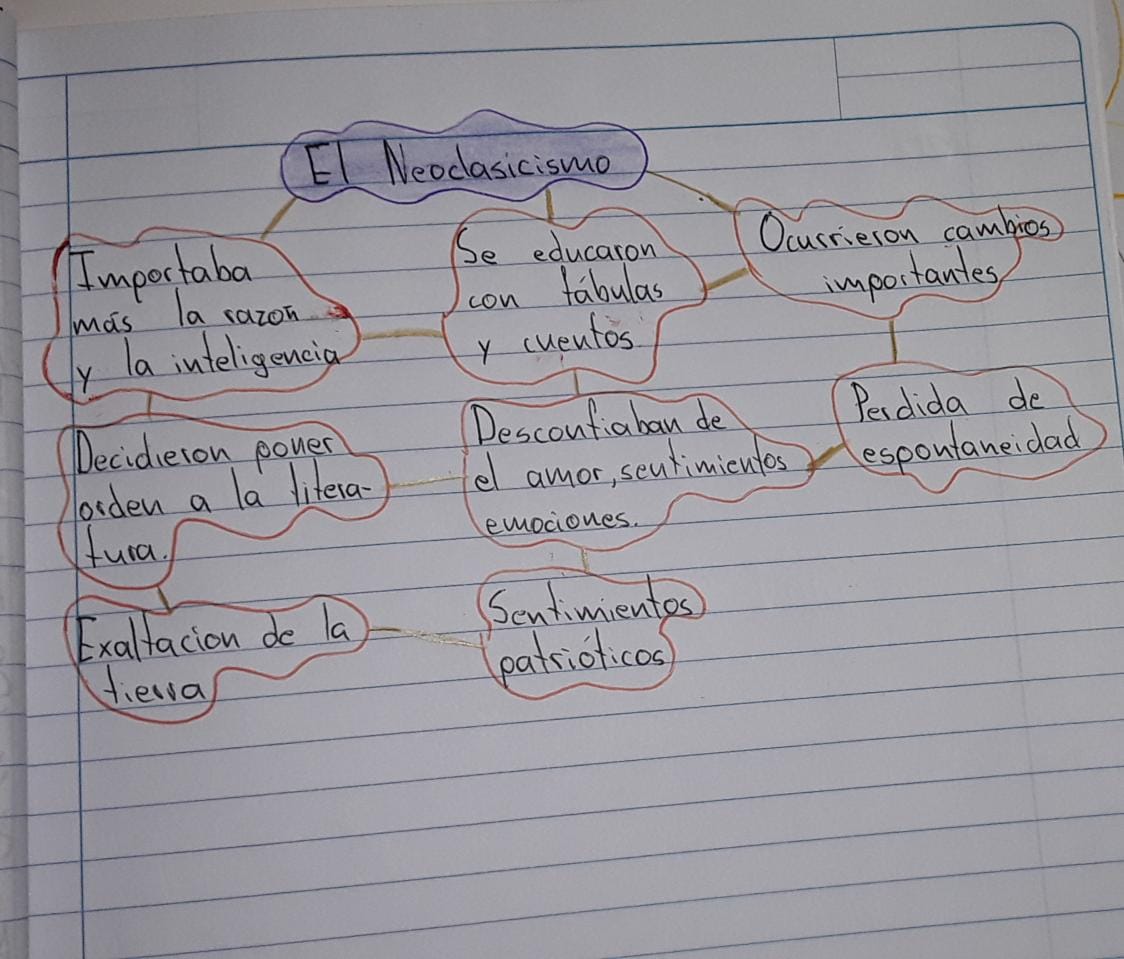 El Neoclasicismo
Importaba
más la razón
y la inteligencia
Se educaron
con fábulas
y cuentos
Ocurrieron cambios
importantes
Decidieron poner
orden a la litera-
tura.
Desconfiaban de
el amor, sentimientos
emociones.
Perdida de
espontaneidad
Exaltacion de la
tierra
Sentimientos
patrióticos